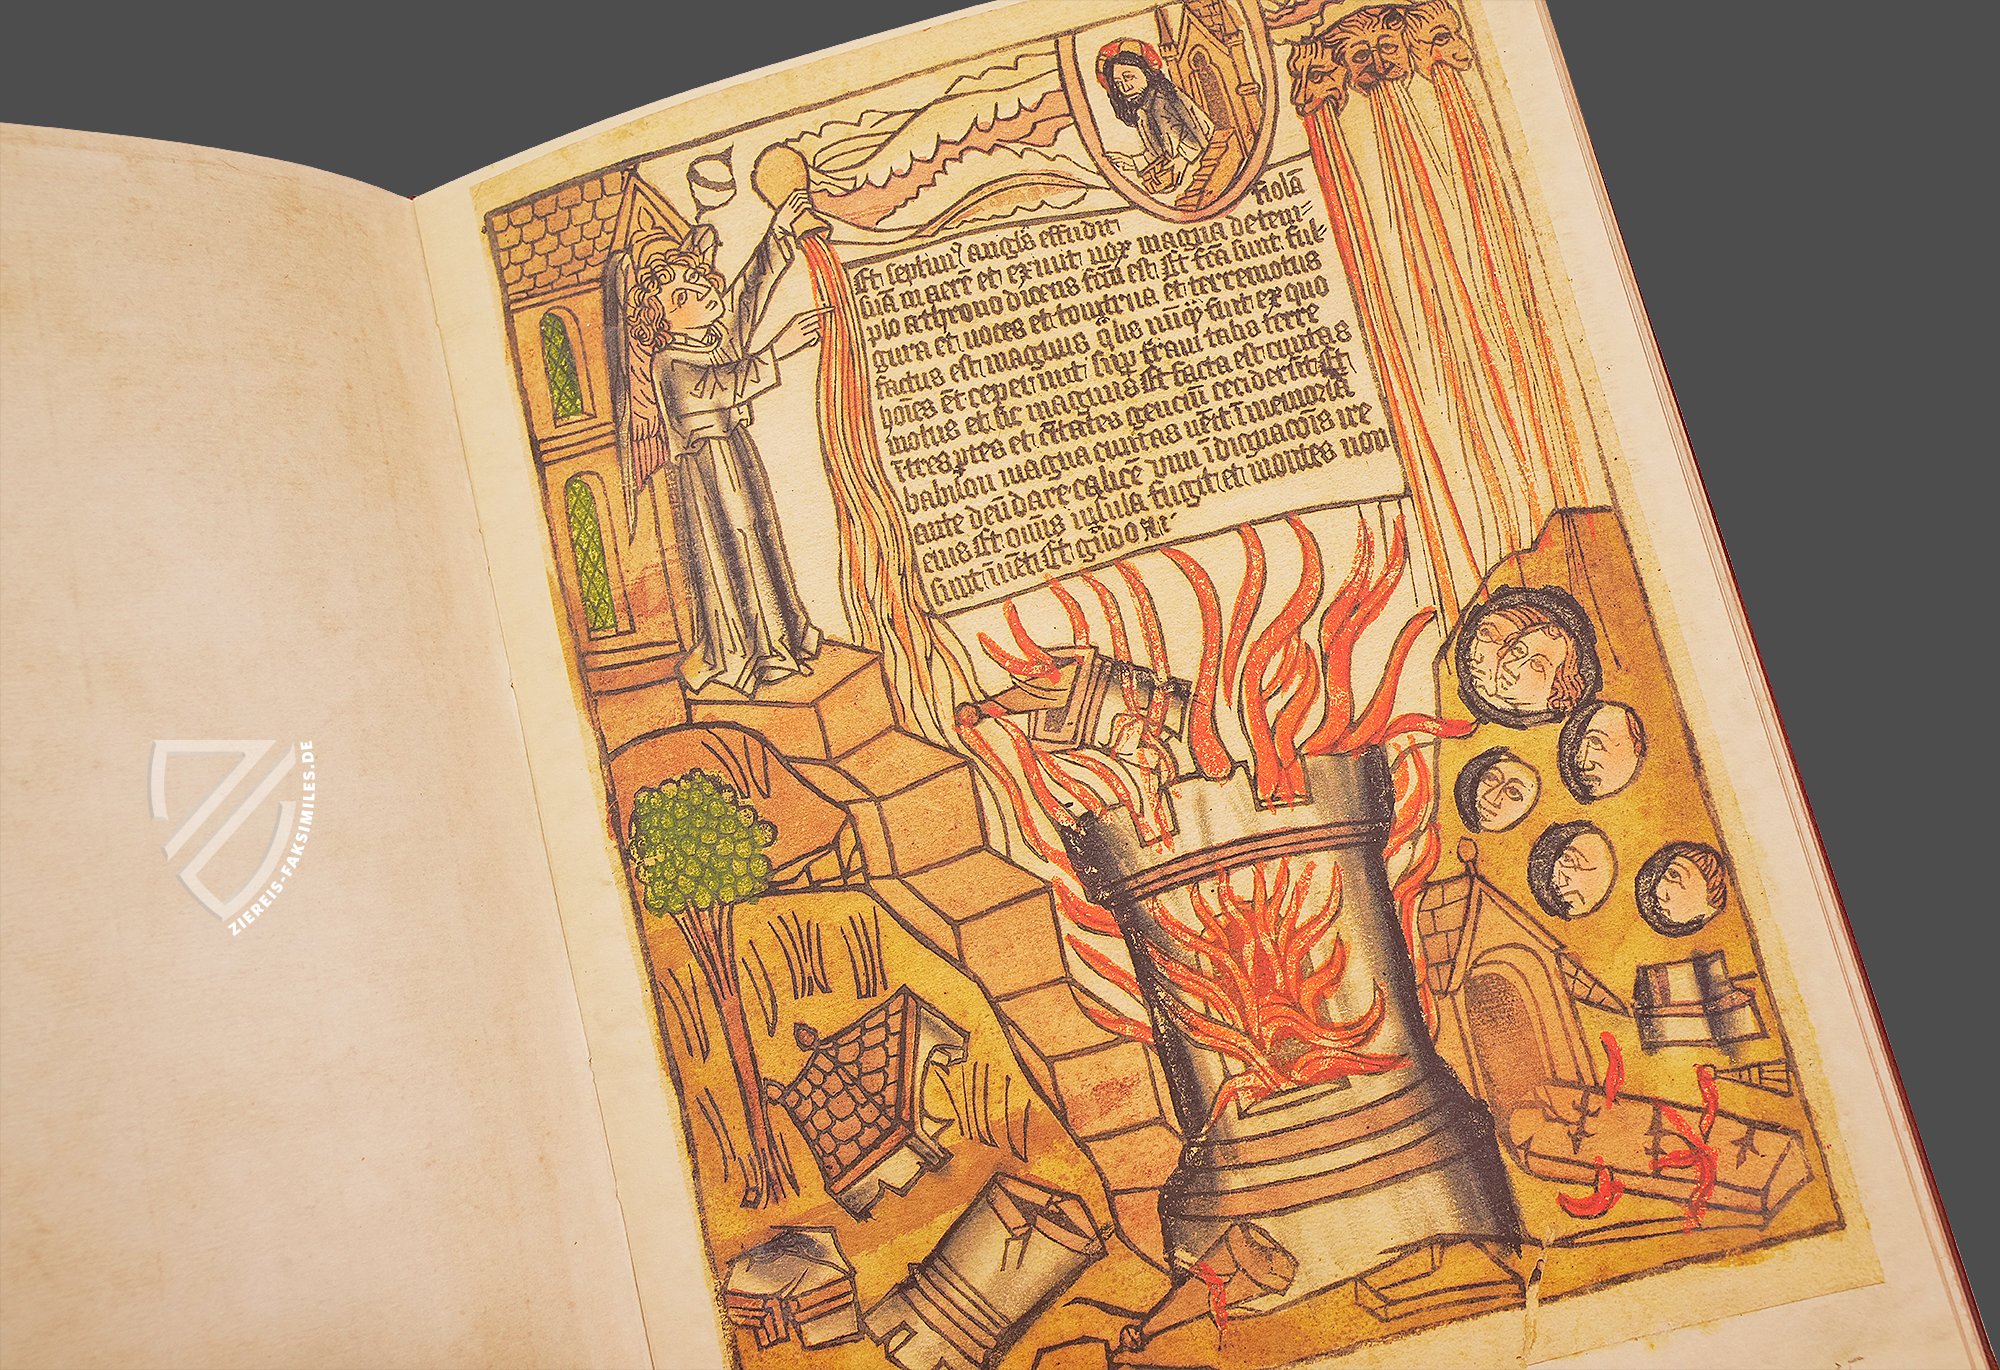 S
Et septim⁹ angl̃s effudit fiolã
suã in aerẽ et exiuit vox magna de tem=
plo a throno dicens fcm̃ est Et fcã sunt ful-
gura et uoces et tonitrua et terremotus
factus est magnus q̃lis nũq̃ fuit ex quo
hoĩes ceperunt sup terrã talis terre
motus et sic magnus Et facta est ciuitas
ĩ tres p̃tes et ciẽtates genciũ ceciderũt Et
babilon magna ciuitas uẽit ĩ memoriã
ante deũ dare calicẽ vini ĩdignacõis ire
eius Et om̃is insula fugit et montes non
sunt inuẽti Et grãdo
ZIEREIS-FAKSIMILES.DE